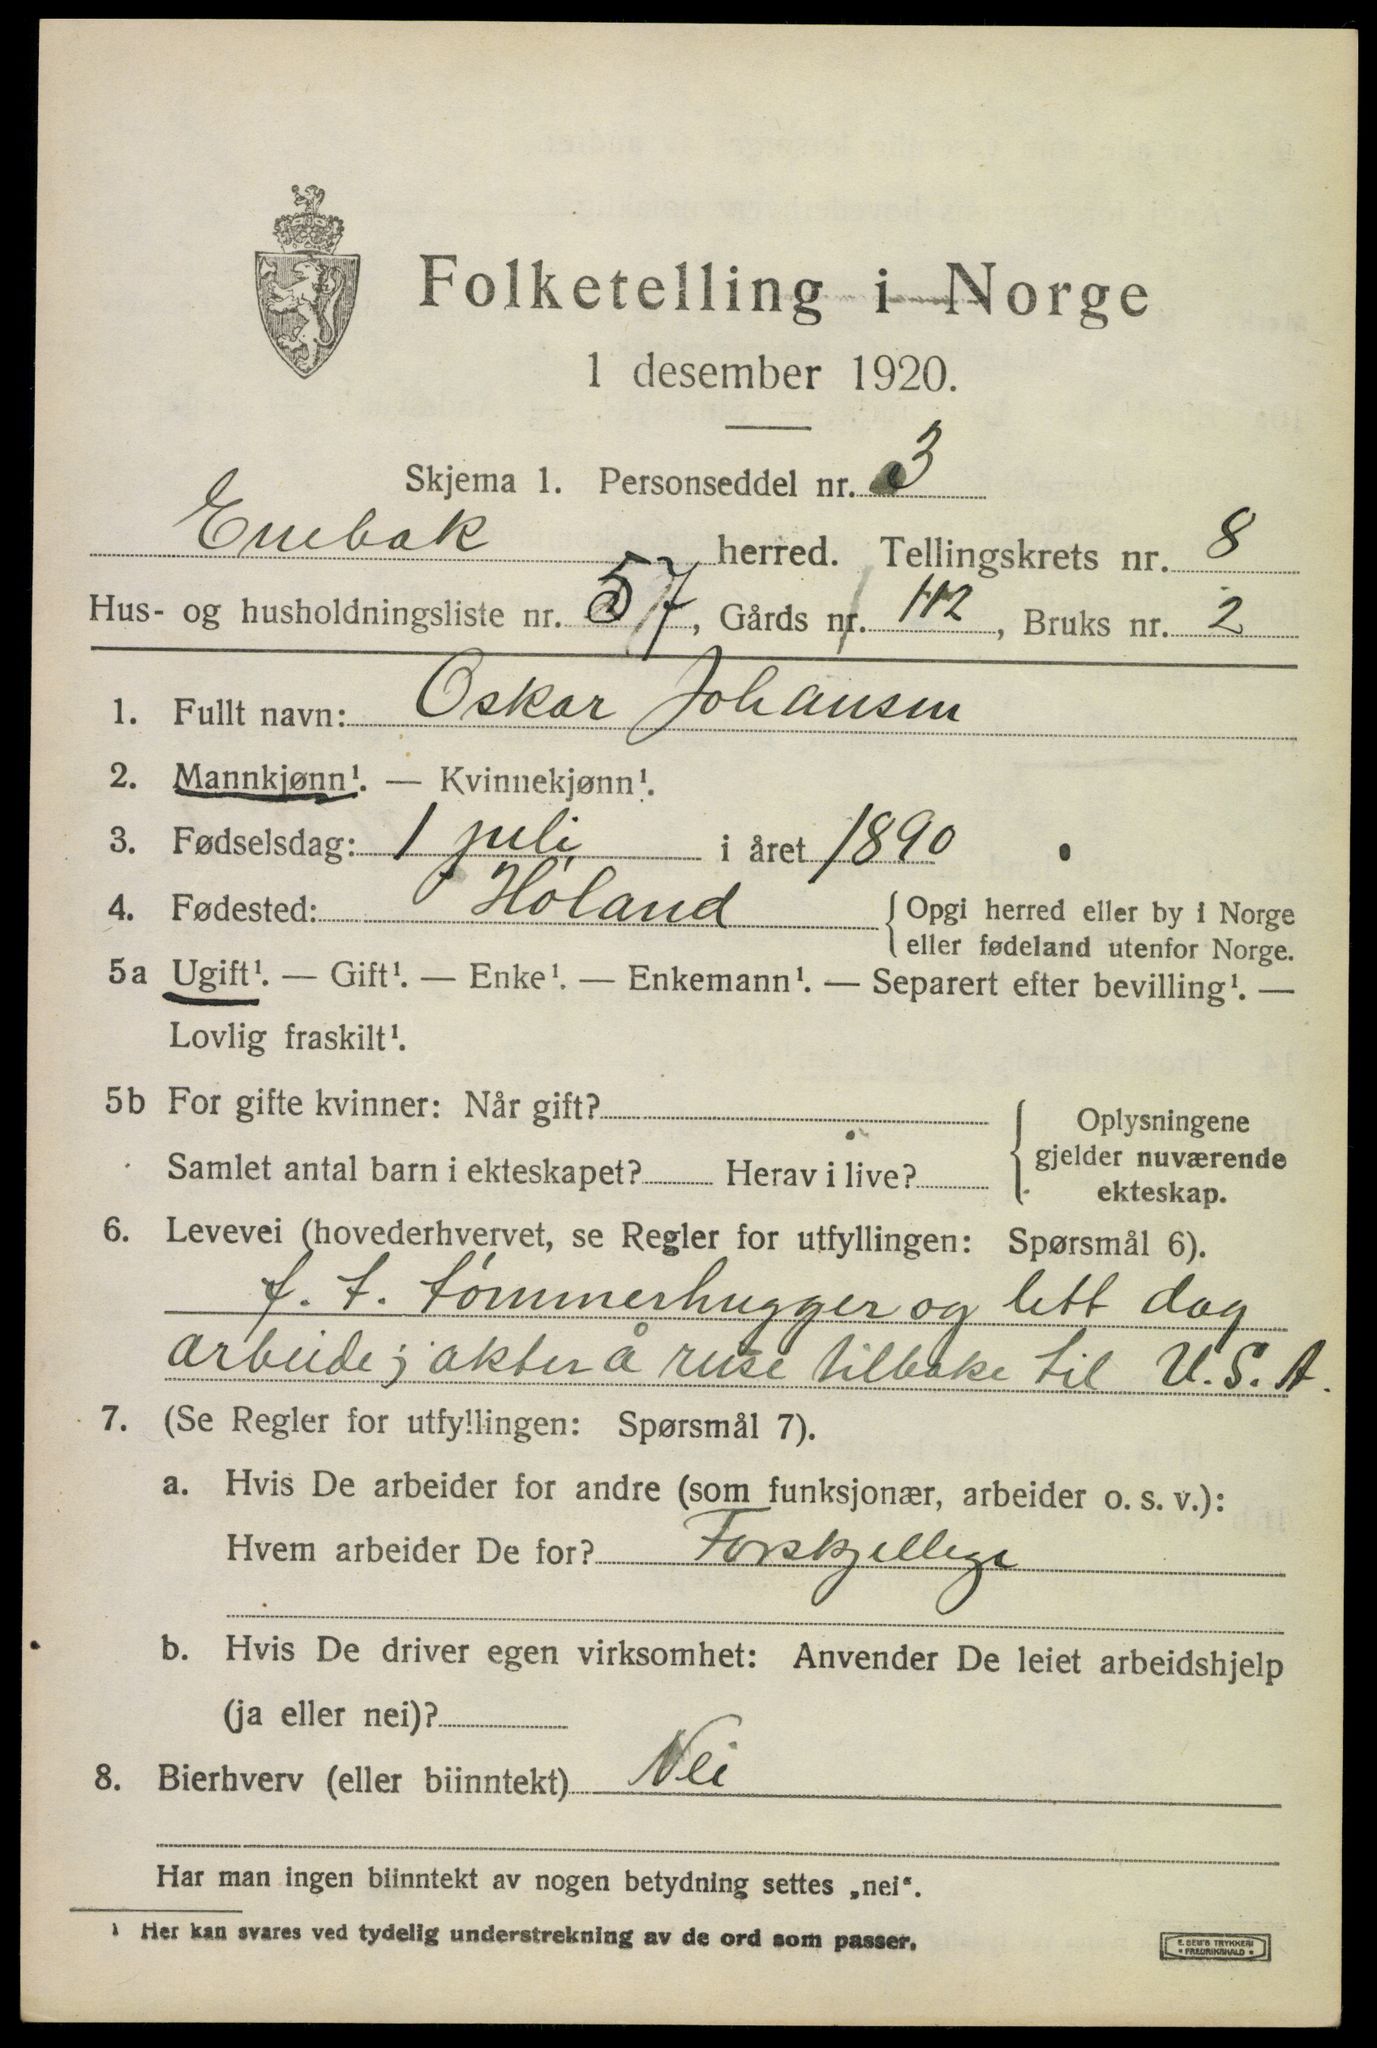 Folketelling i Norge
1 desember 1920.
Skjema 1. Personseddel nr. 3
Enebak herred. Tellingskrets nr. 8
Hus- og husholdningsliste nr. 57, Gårds nr. 112, Bruks nr. 2
1. Fullt navn: Oskar Johansen
2. Mannkjønn¹. — Kvinnekjønn¹.
3. Fødselsdag: 1 juli i året 1890
4. Fødested: Høland {Opgi herred eller by i Norge
eller fødeland utenfor Norge.
5a Ugift¹. — Gift¹. — Enke¹. — Enkemann¹. — Separert efter bevilling¹. —
Lovlig fraskilt¹.
5b For gifte kvinner: Når gift?
Samlet antal barn i ekteskapet? Herav i live?
Oplysningene
gjelder nuværende
ekteskap.
6. Levevei (hovederhvervet, se Regler for utfyllingen: Spørsmål 6).
f. t. tømmerhugger og lett dag
arbeide; akter å reise tilbake til U.S.A.
7. (Se Regler for utfyllingen: Spørsmål 7).
a. Hvis De arbeider for andre (som funksjonær, arbeider o. s. v.):
Hvem arbeider De for? Forskjellige
b. Hvis De driver egen virksomhet: Anvender De leiet arbeidshjelp
(ja eller nei)?
8. Bierhverv (eller biinntekt) Nei
Har man ingen biinntekt av nogen betydning settes „nei“.
¹ Her kan svares ved tydelig understrekning av de ord som passer.
E. SEM'S TRYKKERI
• FREDRIKSHALD •